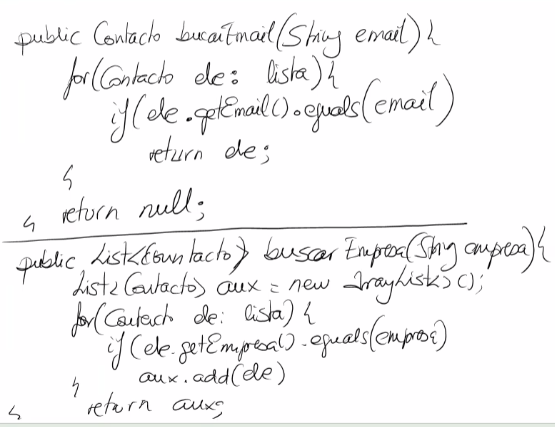 public Contacto buscarEmail(String email){
for(Contacto ele: lista){
if(ele.getEmail().equals(email)
return ele;
}
} return null;
public List<Contacto> buscarEmpresa(String empresa){
List<Contacto> aux = new ArrayList<>();
for(Contacto ele: lista){
if(ele.getEmpresa().equals(empresa)
aux.add(ele)
}
} return aux;